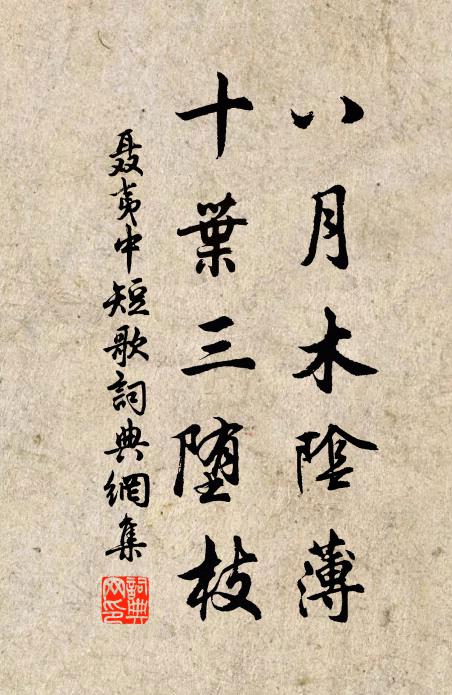 八月木陰薄
十葉三堕枝
聶夷中短歌詞典網集
詞典網印